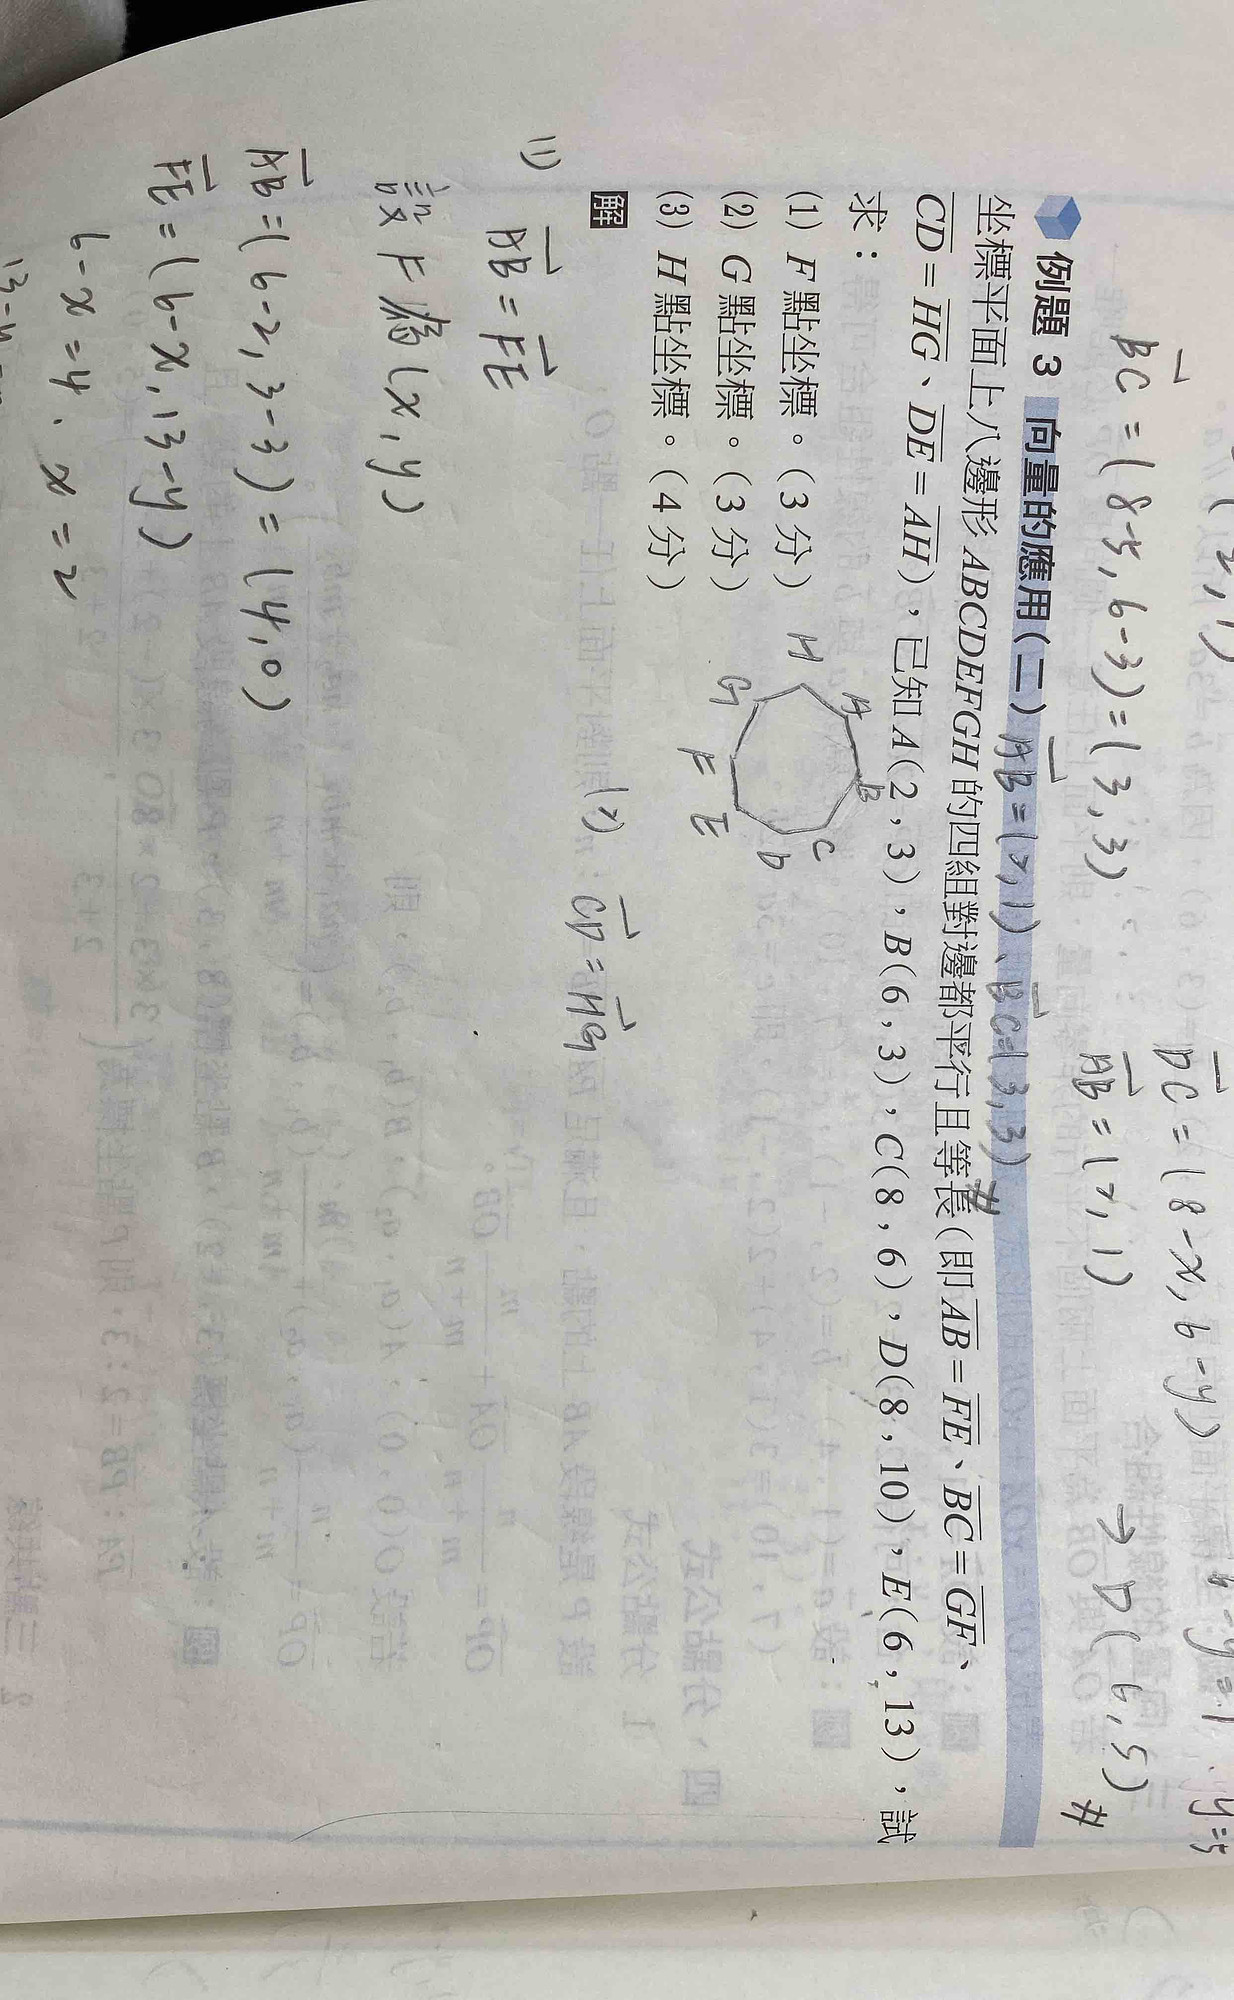 (2, 1)
BC = (8-5, 6-3) = (3, 3)
DC = (8-x, 6-y)
AB = (2, 1)
→ D(6, 5) #
例題 3 向量的應用(二) AB = (2, 1)、BC = (3, 3) #
坐標平面上八邊形 ABCDEFGH 的四組對邊都平行且等長(即 AB = FE、BC = GF、
CD = HG、DE = AH),已知 A(2,3),B(6,3),C(8,6),D(8,10),E(6,13),試
求:
(1) F 點坐標。(3 分)
(2) G 點坐標。(3 分)
(3) H 點坐標。(4 分)
H A B C D E F G
解
(1) AB = FE
設 F 為 (x, y)
AB = (6-2, 3-3) = (4, 0)
FE = (6-x, 13-y)
6-x = 4, x = 2
(2) CD = HG